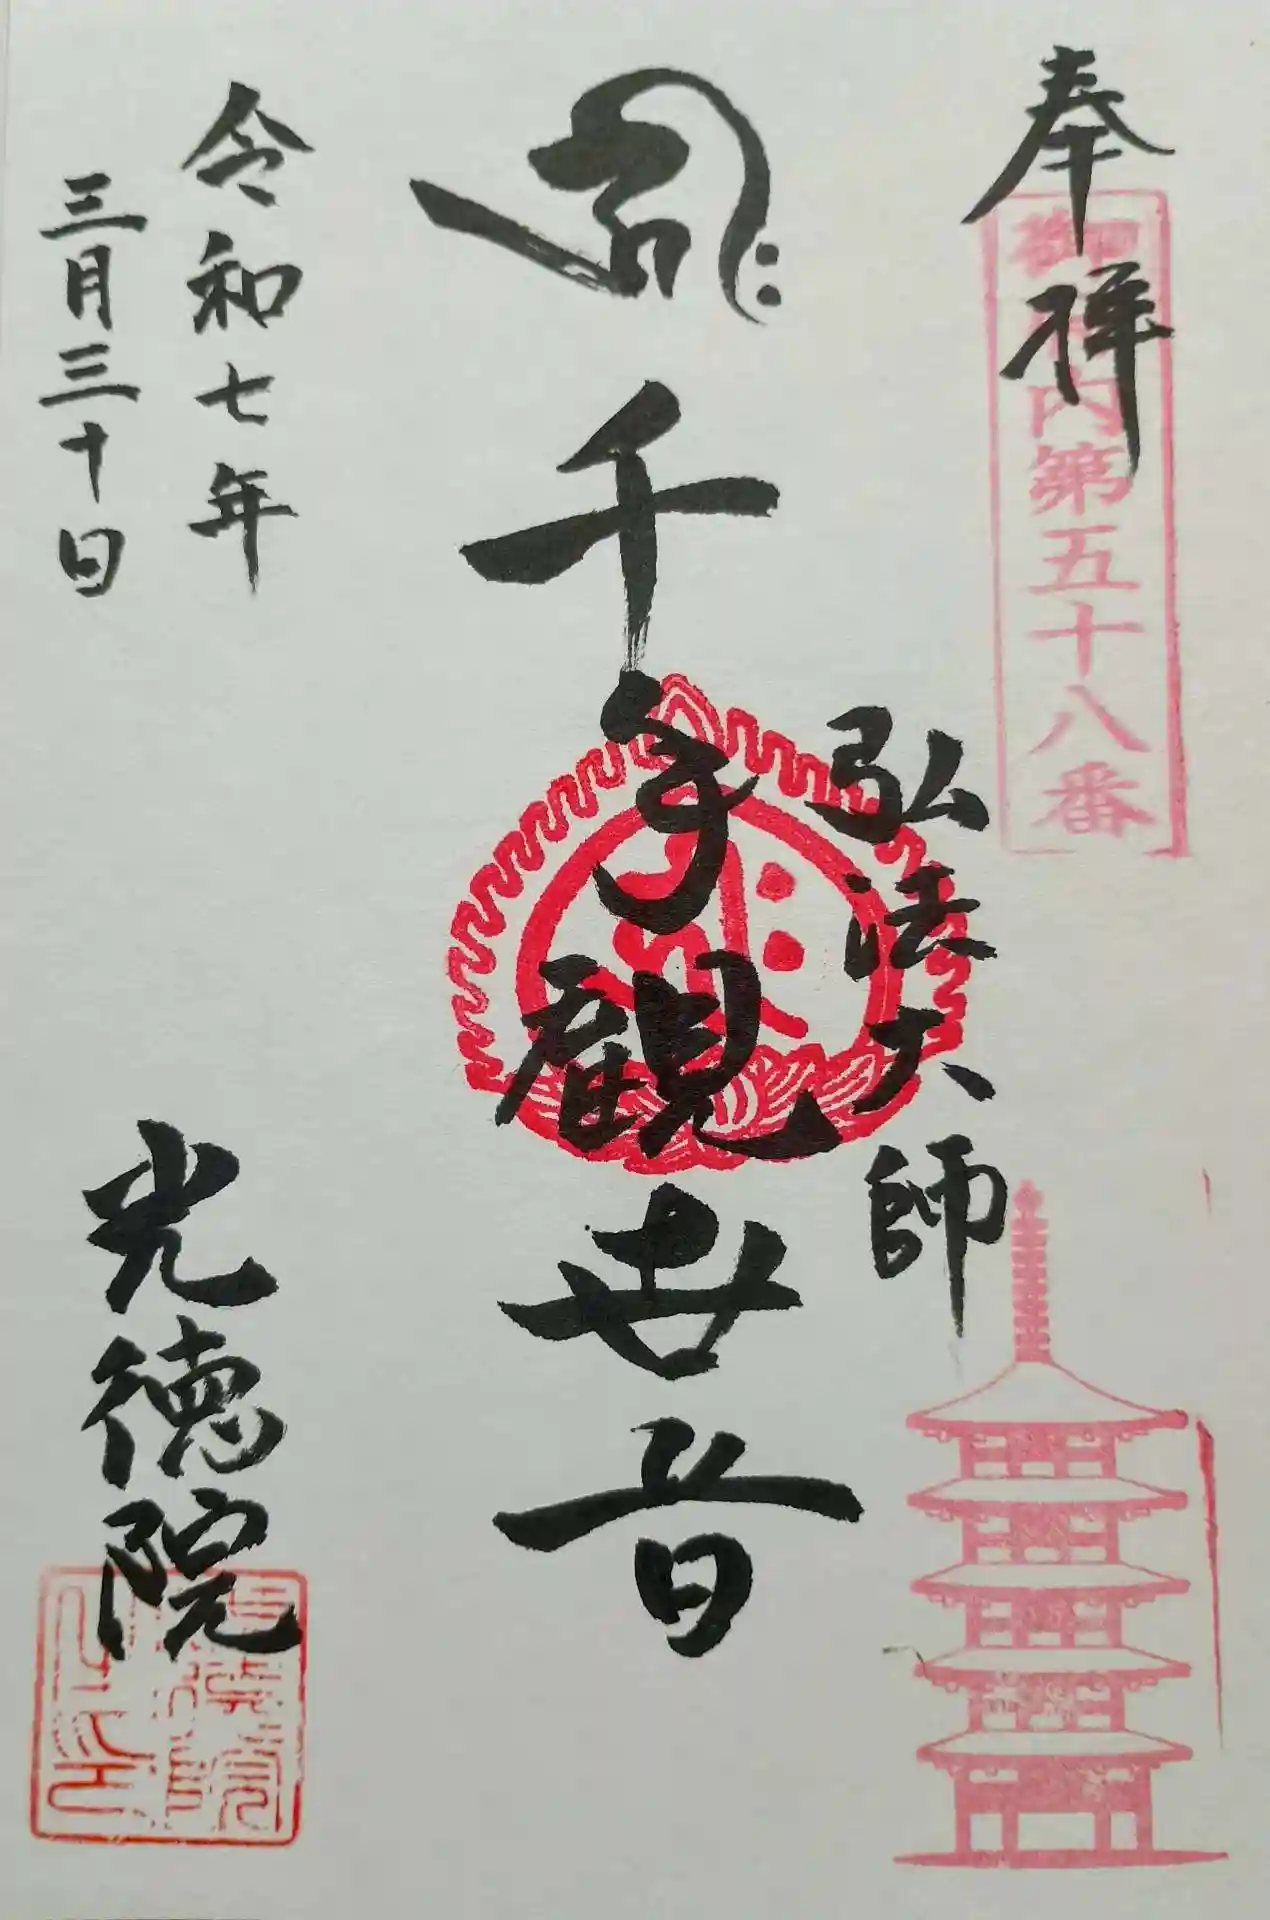 奉拝
御府内第五十八番
弘法大師
千手観世音
令和七年
三月三十日
光徳院